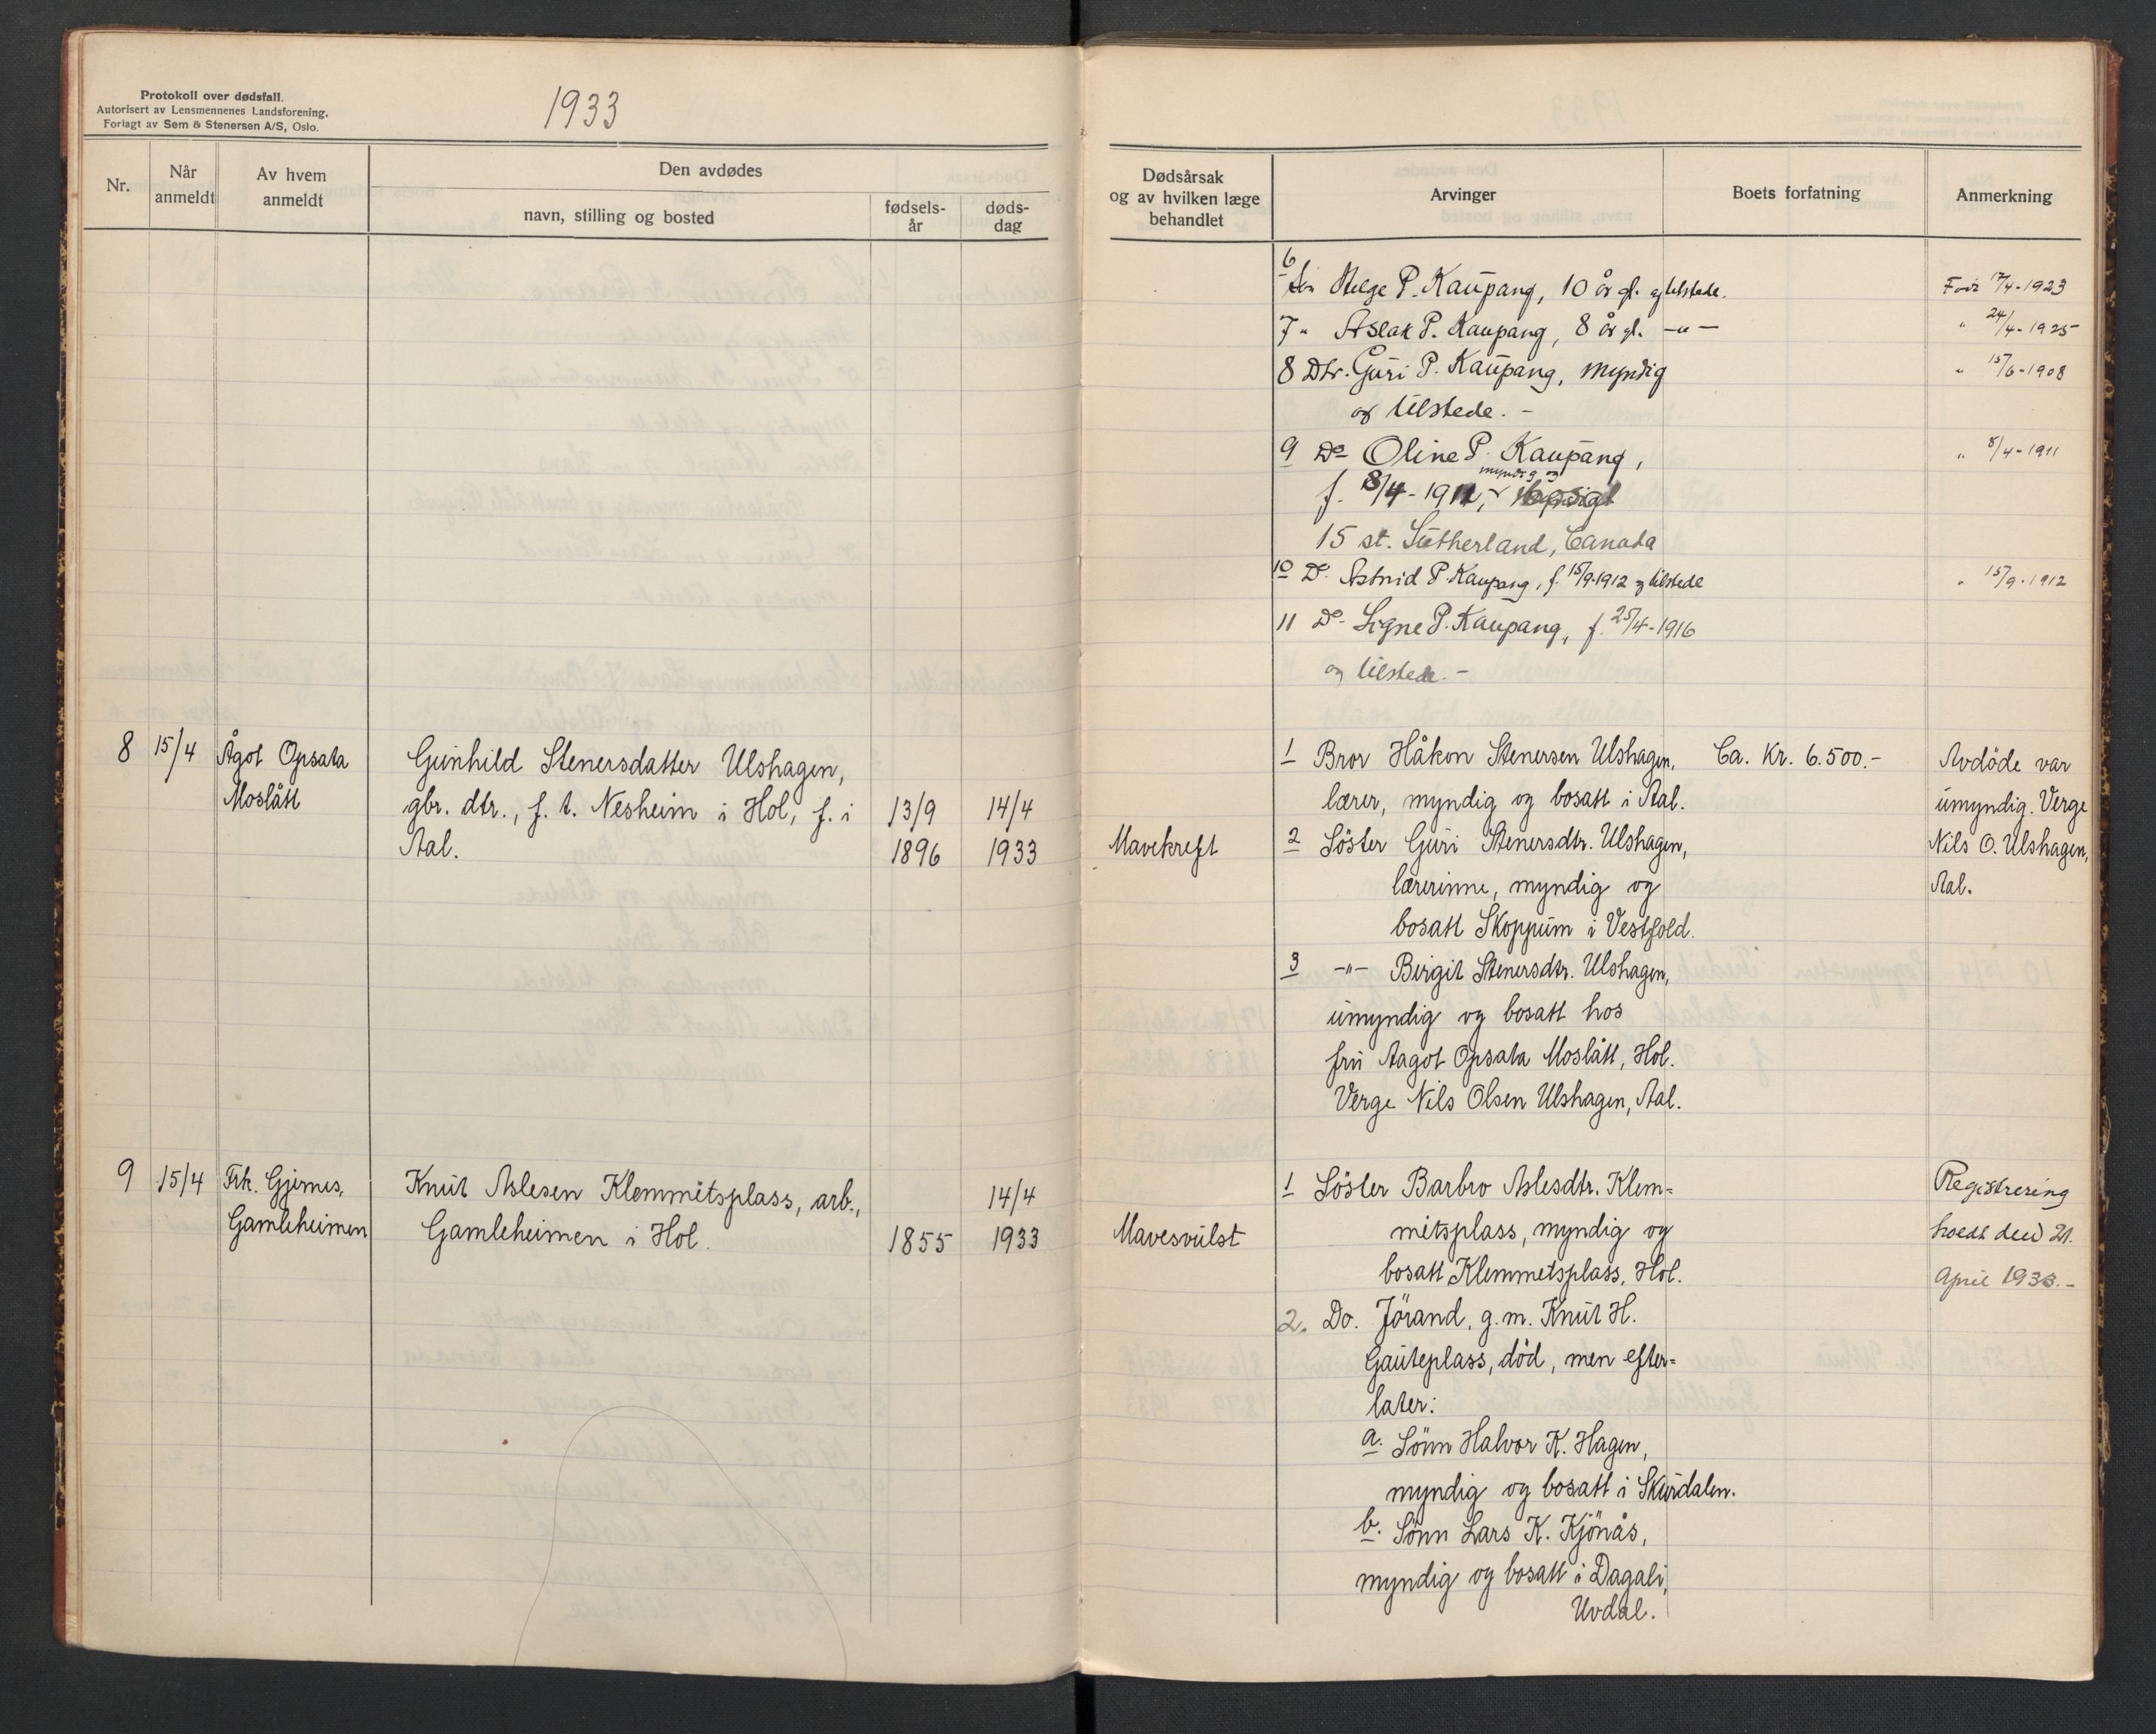 Protokoll over dødsfall.
Autorisert av Lensmennenes Landsforening.
Forlagt av Sem & Stenersen A/S, Oslo.
1933
Nr.
Når anmeldt
Av hvem anmeldt
Den avdødes
navn, stilling og bosted
fødsels-år
døds-dag
Dødsårsak og av hvilken læge behandlet
Arvinger
Boets forfatning
Anmerkning
6
Sön Helge P. Kaupang, 10 år gl. og tilstede.
Född 17/4-1923
7 " Aslak P. Kaupang, 8 år gl. -"-
" 24/4-1925
8 Dtr. Guri P. Kaupang, myndig
" 15/6-1908
og tilstede. -
9 Do Oline P. Kaupang,
" 8/4-1911
myndig og
f. 8/4-1911,
15 st. Sutherland, Canada
10 Do. Astrid P. Kaupang, f. 15/9-1912 og tilstede
" 15/9-1912
11 Do- Signe P. Kaupang, f. 25/4-1916
og tilstede. -
8 15/4 Ågot Opsata
Moslått
Gunhild Stenersdatter Ulshagen,
gbr. dtr., f. t. Nesheim i Hol, f. i
Aal.
13/9
1896
14/4
1933
Mavekreft
1 Bror Håkon Stenersen Ulshagen,
lærer, myndig og bosatt i Aal.
2 Söster Guri Stenersdtr. Ulshagen,
lærerinne, myndig og
bosatt Skoppum i Vestfold.
3 -"- Birgit Stenersdtr. Ulshagen,
umyndig og bosatt hos
fru Aagot Opsata Moslått, Hol.
Verge Nils Olsen Ulshagen, Aal.
Ca. Kr. 6.500.-
Avdöde var
umyndig. Verge
Nils O. Ulshagen,
Aal.
9 15/4 Frk. Gjernes,
Gamleheimen
Knut Aslesen Klemmitsplass, arb.,
Gamleheimen i Hol.
1855
14/4
1933
Mavesvulst
1 Söster Barbro Aslesdtr. Klem=
mitsplass, myndig og
bosatt Klemmetsplass, Hol.
2. Do. Jörand, g.m. Knut H.
Gauteplass, död, men efter=
later:
a. Sönn Halvor K. Hagen,
myndig og bosatt i Skurdalen.
b. Sönn Lars K. Kjönås,
myndig og bosatt i Dagali,
Uvdal.
Registrering
holdt den 21.
April 1933.-